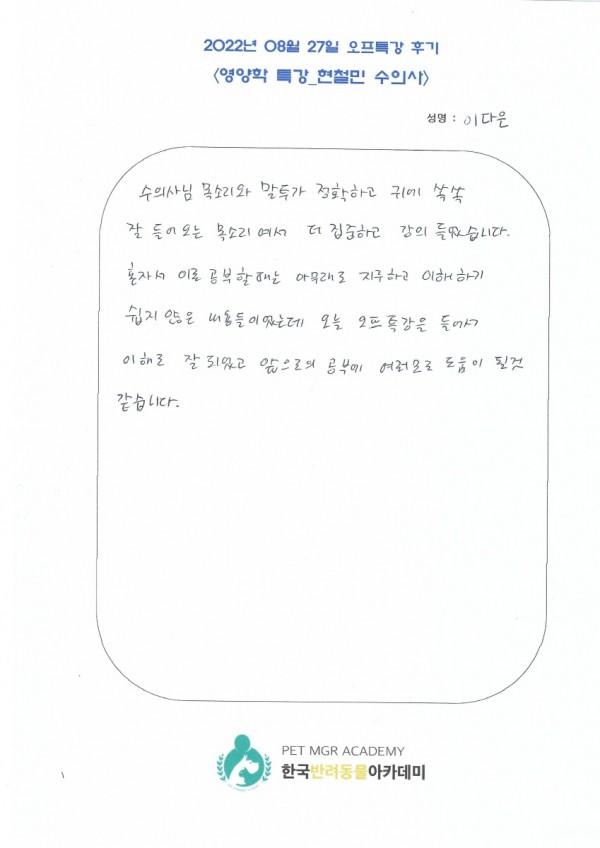 2022년 08월 27일 오프특강 후기
<영양학 특강_현철민 수의사>
성명 : 이다은
수의사님 목소리와 말투가 정확하고 귀에 쏙쏙
잘 들어오는 목소리여서 더 집중하고 강의 들었습니다.
혼자서 이론공부할때는 아무래도 지루하고 이해하기
쉽지 않은 내용들이었는데 오늘 오프특강을 들어서
이해도 잘 되었고 앞으로의 공부에 여러모로 도움이 될것
같습니다.
PET MGR ACADEMY
한국반려동물아카데미